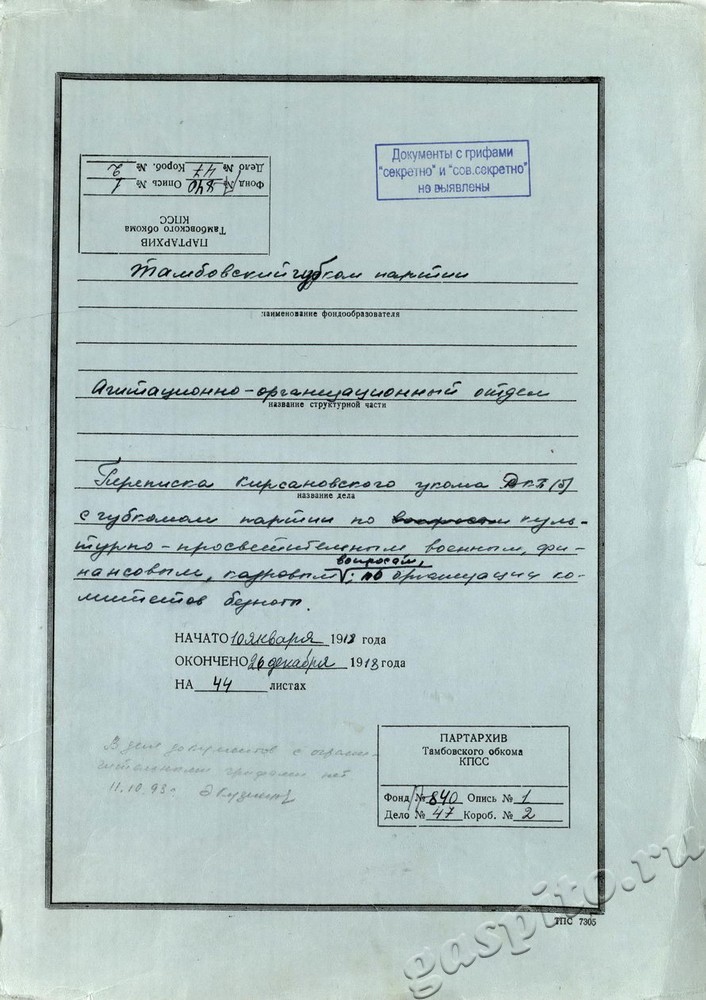 Документы с грифами
"секретно" и "сов.секретно"
не выявлены
ПАРТАРХИВ
Тамбовского обкома
КПСС
Фонд № П-840 Опись № 1
Дело № 47 Короб. № 2
Тамбовский губком партии
наименование фондообразователя
Агитационно-организационный отдел
название структурной части
Переписка Кирсановского укома РКП(б)
название дела
с губкомом партии по вопросам куль-
турно-просветительным, военным, фи-
вопросам,
нансовым, кадровым; по организации ко-
митетов бедноты.
НАЧАТО 10 января 1918 года
ОКОНЧЕНО 26 декабря 1918 года
НА 44 листах
В деле документов с ограни-
чительными грифами нет
11.10.93г
ПАРТАРХИВ
Тамбовского обкома
КПСС
Фонд № П-840 Опись № 1
Дело № 47 Короб. № 2
ТПС 7305
gaspito.ru